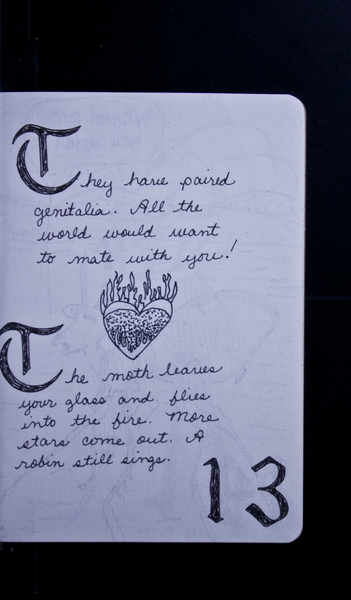 They have paired
genitalia. All the
world would want
to mate with you!
The moth leaves
your glass and flies
into the fire. More
stars come out. A
robin still sings.
13